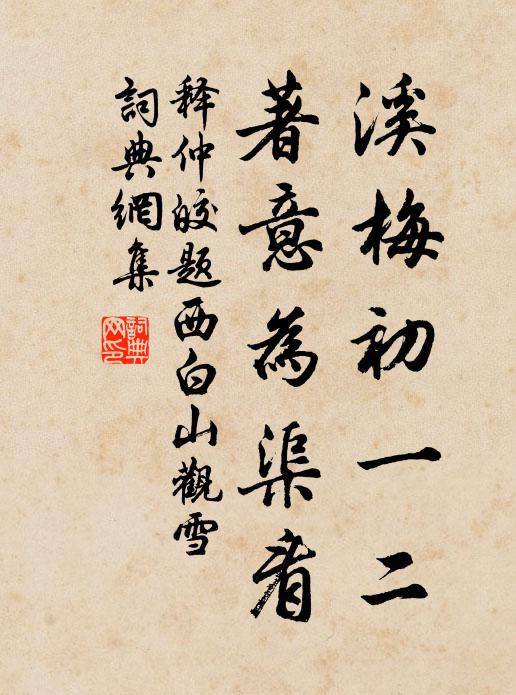 溪梅初一二
著意為渠看
释仲皎题西白山觀雪
詞典網集
詞典網印